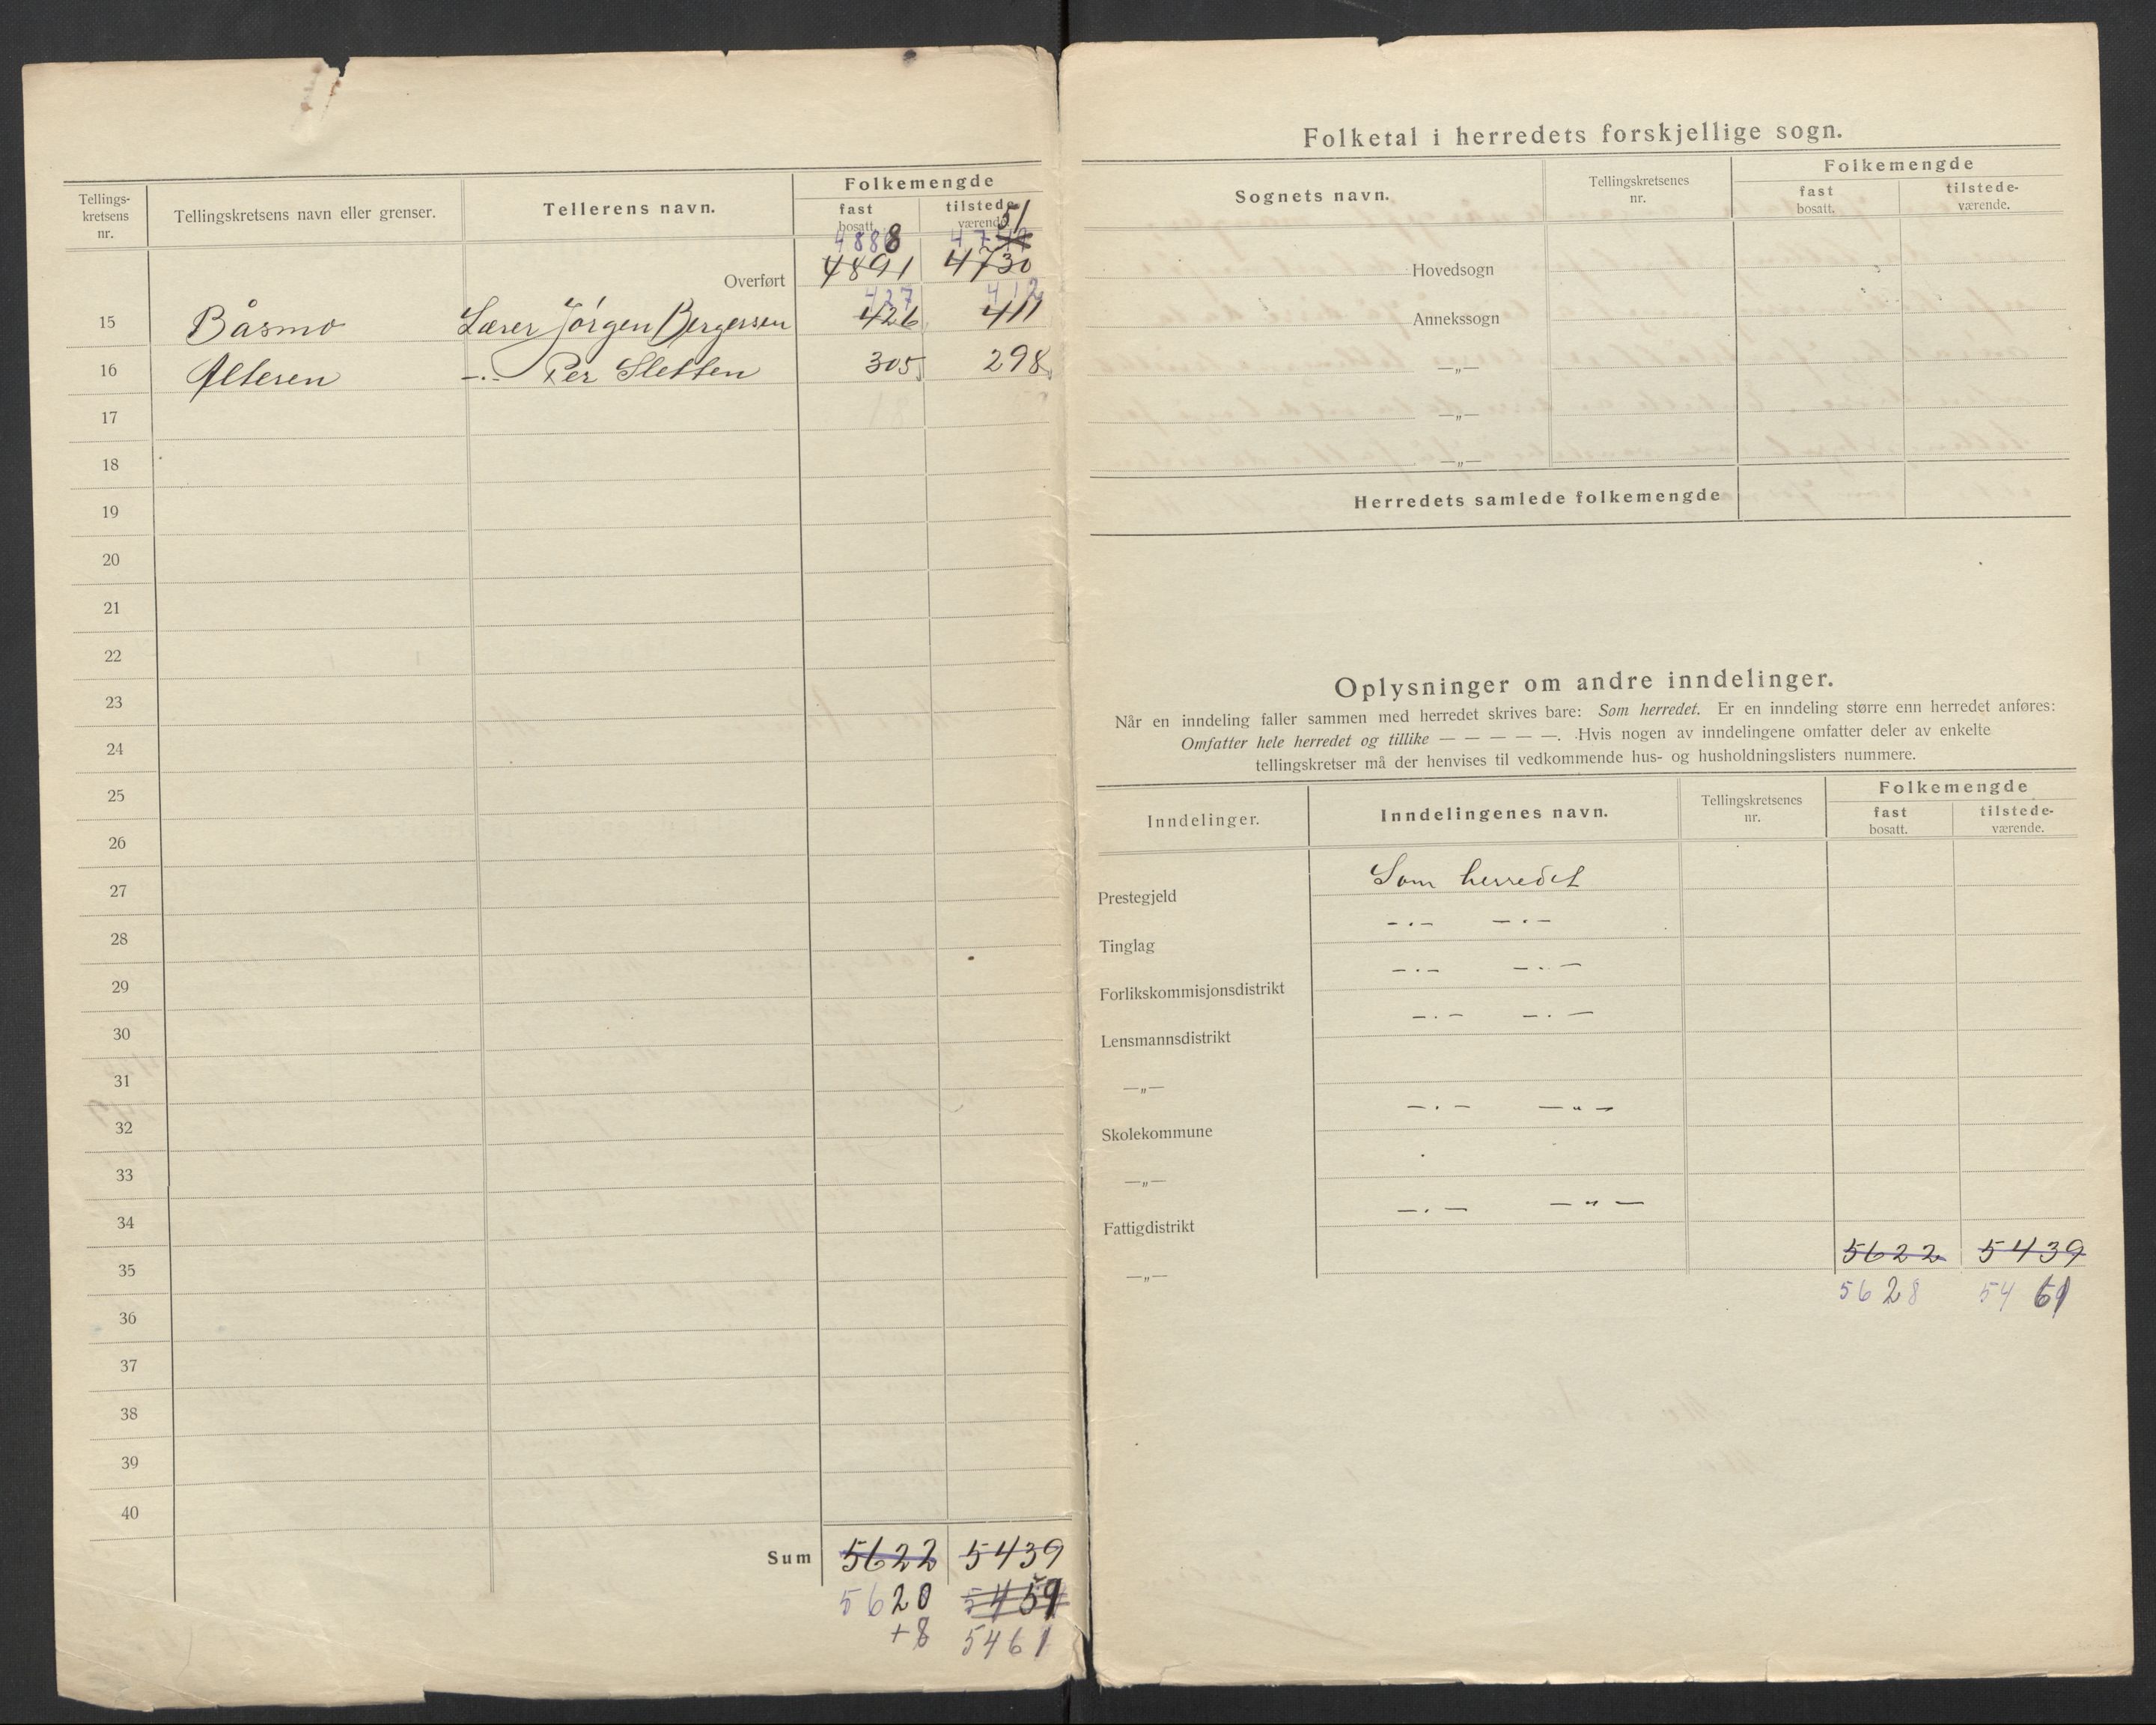 Tellings-
kretsens
nr.
Tellingskretsens navn eller grenser.
Tellerens navn.
Folkemengde
fast
bosatt.
tilstede-
værende.
51
4888 4749
Overført 4891 4730
427 412
15 Båsmo Lærer Jörgen Bergersen 426 411
16 Alteren -.- Per Sletten 305 298
17
18
19
20
21
22
23
24
25
26
27
28
29
30
31
32
33
34
35
36
37
38
39
40
Sum 5622 5439
5620 5459
+8 5461
Folketal i herredets forskjellige sogn.
Sognets navn.
Tellingskretsenes
nr.
Folkemengde
fast
bosatt.
tilstede-
værende.
Hovedsogn
Annekssogn
—„—
—„—
—„—
Herredets samlede folkemengde
Oplysninger om andre inndelinger.
Når en inndeling faller sammen med herredet skrives bare: Som herredet. Er en inndeling større enn herredet anføres:
Omfatter hele herredet og tillike — — — — —. Hvis nogen av inndelingene omfatter deler av enkelte
tellingskretser må der henvises til vedkommende hus- og husholdningslisters nummere.
Inndelinger.
Inndelingenes navn.
Tellingskretsenes
nr.
Folkemengde
fast
bosatt.
tilstede-
værende.
Prestegjeld Som herredet
Tinglag -.- -.-
Forlikskommisjonsdistrikt -.- -.-
Lensmannsdistrikt -.- -.-
—„—
Skolekommune -.- -„-
—„—
Fattigdistrikt -.- -„-
—„— 5622 5439
5628 5461